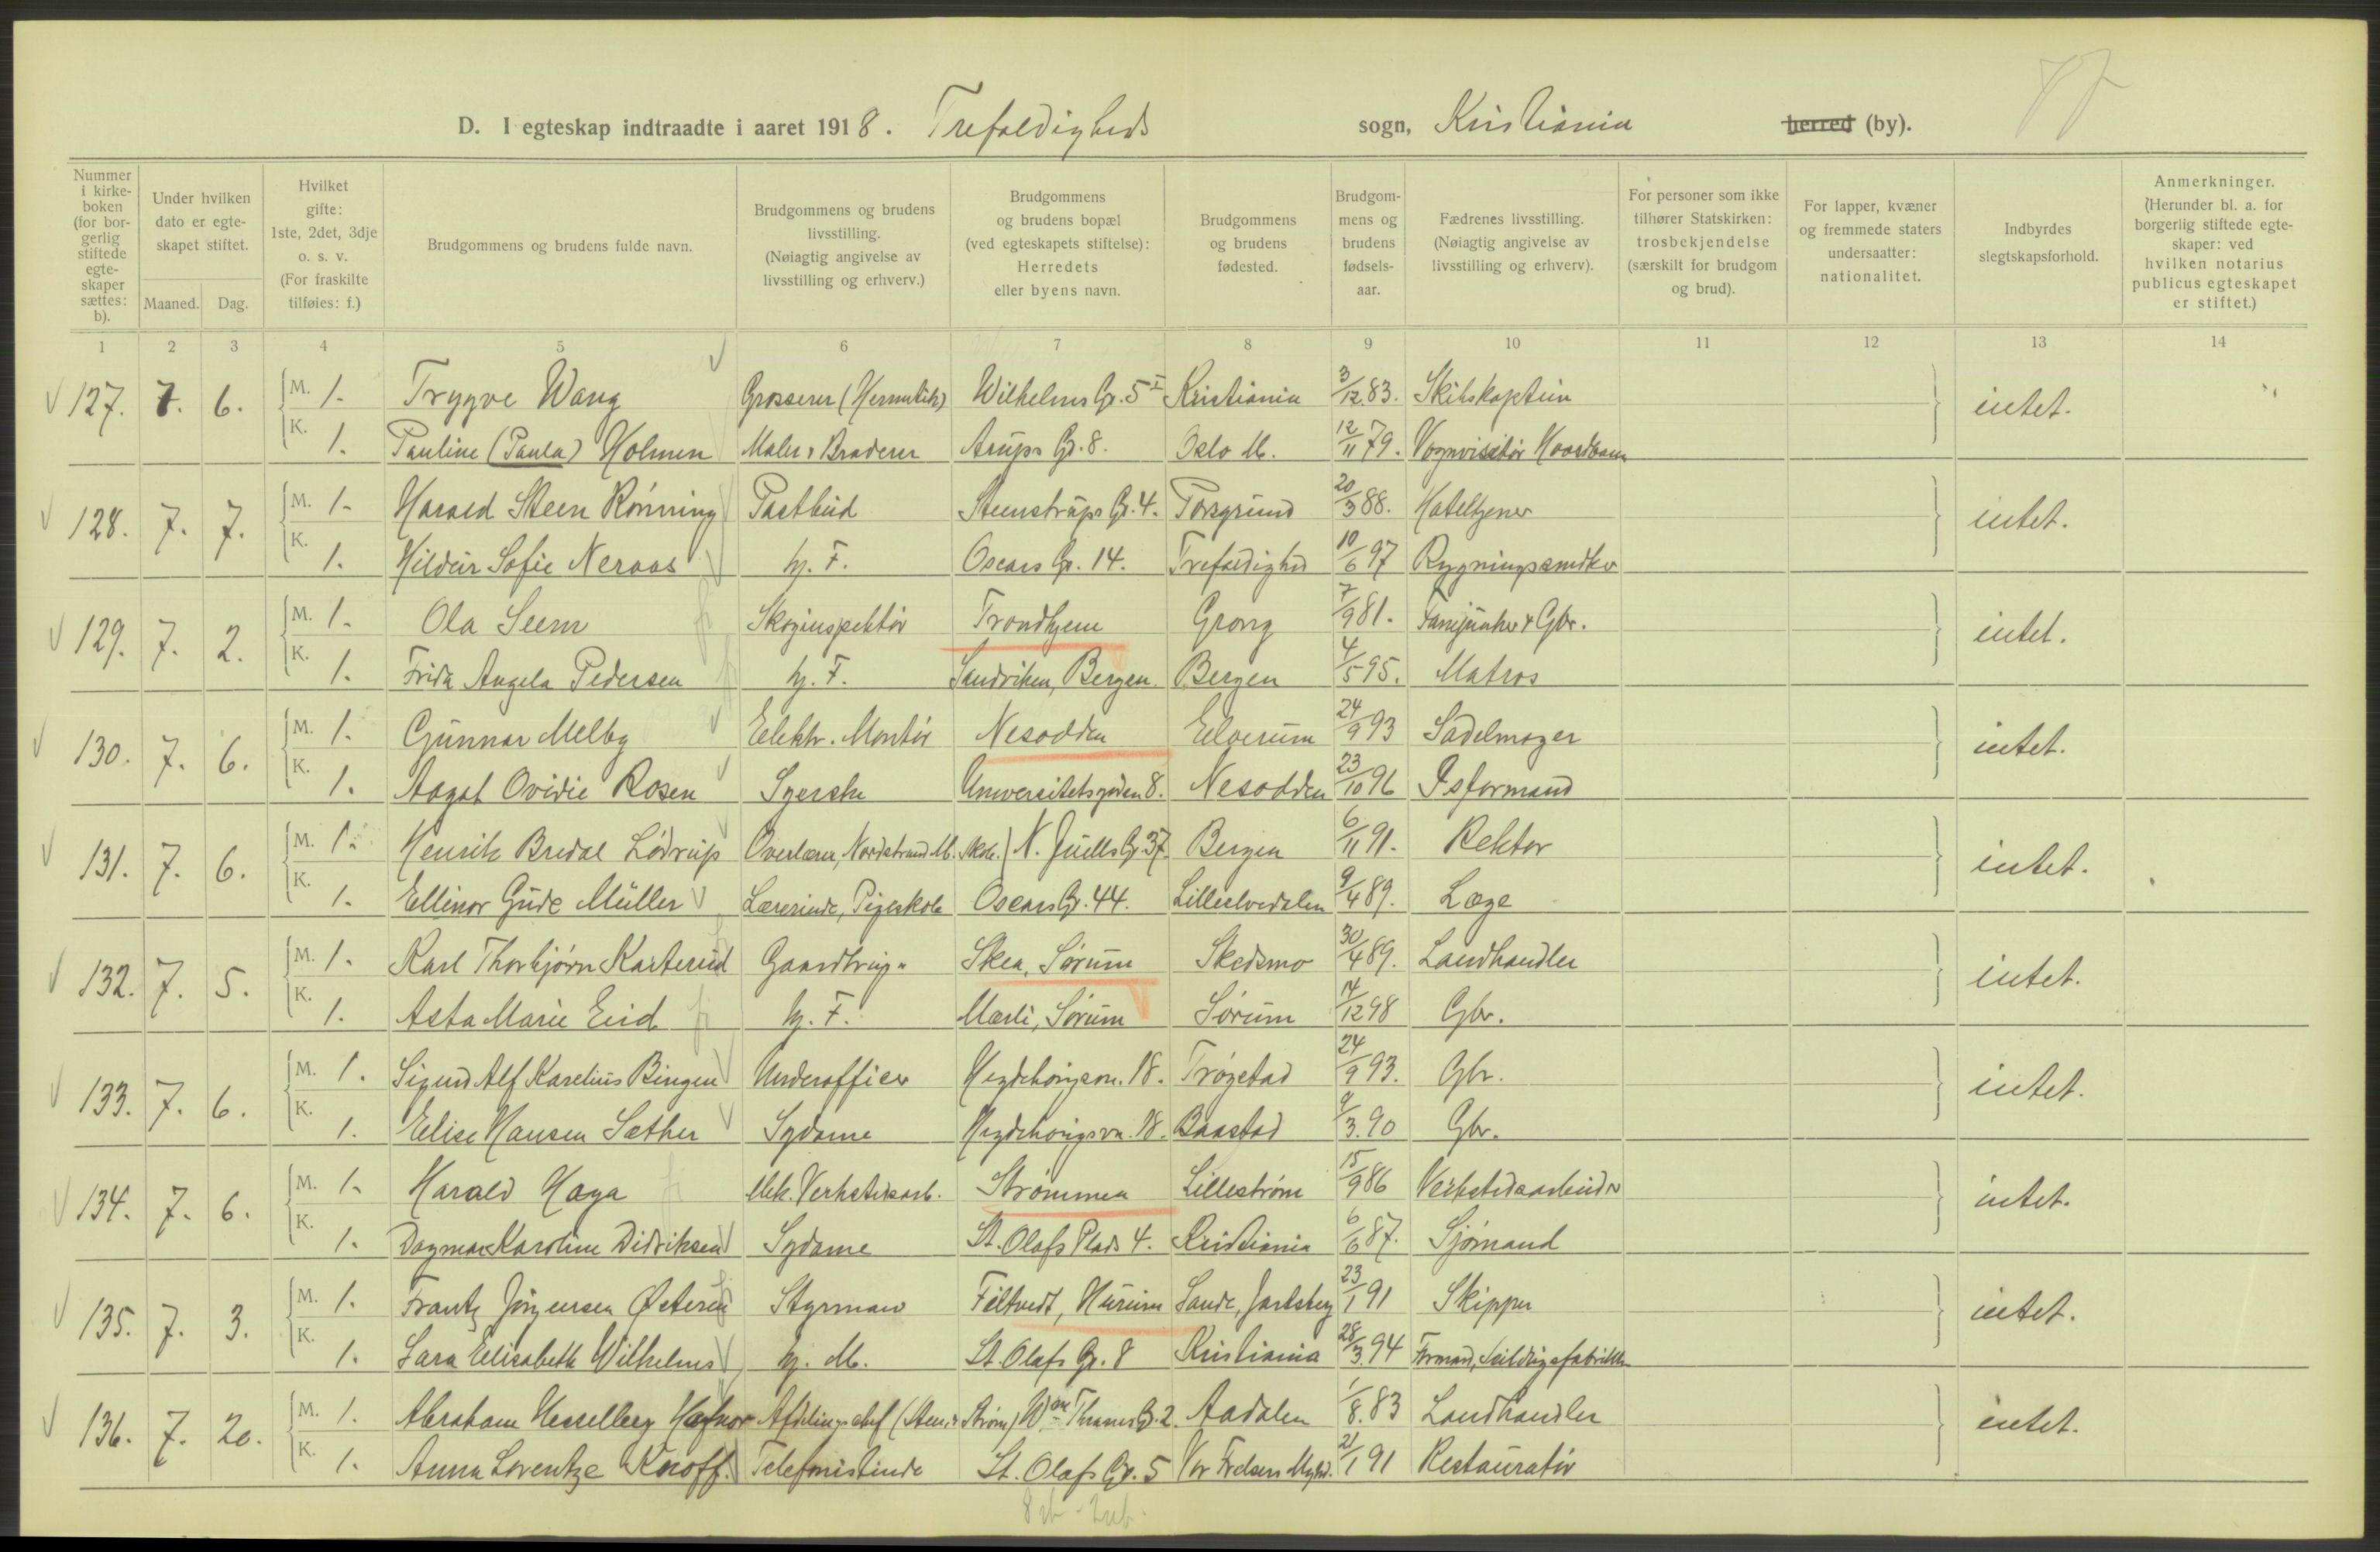 87
D. I egteskap indtraadte i aaret 1918. Trefoldigheds sogn, Kristiania herred (by).
Nummer i kirkeboken (for borgerlig stiftede egteskaper sættes: b).
Under hvilken dato er egteskapet stiftet.
Maaned. Dag.
Hvilket gifte: 1ste, 2det, 3dje o. s. v. (For fraskilte tilføies: f.)
Brudgommens og brudens fulde navn.
Brudgommens og brudens livsstilling. (Nøiagtig angivelse av livsstilling og erhverv.)
Brudgommens og brudens bopæl (ved egteskapets stiftelse): Herredets eller byens navn.
Brudgommens og brudens fødested.
Brudgommens og brudens fødselsaar.
Fædrenes livsstilling. (Nøiagtig angivelse av livsstilling og erhverv).
For personer som ikke tilhører Statskirken: trosbekjendelse (særskilt for brudgom og brud).
For lapper, kvæner og fremmede staters undersaatter: nationalitet.
Indbyrdes slegtskapsforhold.
Anmerkninger. (Herunder bl. a. for borgerlig stiftede egteskaper: ved hvilken notarius publicus egteskapet er stiftet.)
1 2 3 4 5 6 7 8 9 10 11 12 13 14
127. 7. 6. M. 1. Trygve Wang Grosserer (Hermetik) Wilhelms Gr. 5 I Kristiania 3/12 83. Skibskaptein intet.
K. 1. Pauline (Paula) Holmen Maler & Braderer Arups Gr. 8. Oslo M. 12/11 79. Vognvisitør
128. 7. 7. M. 1. Harald Steen Rønning Postbud Steenstrups Gr. 4. Porsgrund 20/3 88. Hoteltjener intet.
K. 1. Hildur Sofie Neraas hj. F. Oscars Gr. 14. Trefoldighed 10/6 97
129. 7. 2. M. 1. Ola Seem Skoginspektør Trondhjem Grong 7/9 81. Fanejunker & Gbr. intet.
K. 1. Frida Angela Pedersen hj. F. Sandviken, Bergen. Bergen 4/5 95. Matros
130. 7. 6. M. 1. Gunnar Melby Elektr. Montør Nesodden Elverum 24/9 93 Sadelmager intet.
K. 1. Aagot Ovidie Rosen Syerske Universitetsgaden 8. Nesodden 23/10 96 Isformand
131. 7. 6. M. 1. Henrik Bredal Lødrup Overlærer, Nordstrand M. skole. N. Juells Gr 37. Bergen 6/11 91. Rektor intet.
K. 1. Ellinor Gude Müller Lærerinde, Pigeskole Oscars Gr. 44. Lilleelvedalen 9/4 89. Læge
132. 7. 5. M. 1. Karl Thorbjørn Karterud Gaardbrug. Skea, Sørum Skedsmo 30/4 89. Landhandler intet.
K. 1. Asta Marie Eid hj. F. Mærli, Sørum Sørum 14/12 98 Gbr.
133. 7. 6. M. 1. Sigurd Alf Karelius Bingen Underofficer Hegdehaugsvn. 18. Trøgstad 24/9 93. Gbr. intet.
K. 1. Elise Hansen Sæther Sydame Hegdehaugsvn. 18. Baastad 9/3. 90 Gbr.
134. 7. 6. M. 1. Harald Haga Mek. Verkstedsarb. Strømmen Lillestrøm 15/9 86 Verkstedsarbeider intet.
K. 1. Dagmar Karoline Didriksen Sydame St. Olafs Plads 4. Kristiania 6/6 87. Sjømand
135. 7. 3. M. 1. Frantz Jørgensen Østerud Styrmand Filtvedt, Hurum Sande, Jarlsberg 23/1 91 Skipper intet.
K. 1. Sara Elisabeth Wilhelms hj. M. St. Olafs Gr. 8 Kristiania 28/3. 94 Formand, Seildugsfabrikken
136. 7. 20. M. 1. Abraham Hesselberg Hafnor Afdelingschef (Steen & Strøm) Wm Thranes Gr. 2. Aadalen 1/8. 83 Landhandler intet.
K. 1. Anna Lorentze Knoff. Telefonistinde St. Olafs Gr. 5 Vor Frelsers Mghd. 21/1 91 Restauratør